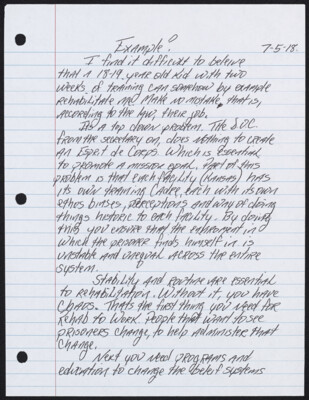 Example?
7-5-18
I find it difficult to believe
that a 18-19 year old kid with two
weeks of training can somehow by example
rehabilitate me. Make no mistake, that is,
according to the law, their job.
It's a top down problem. The D.O.C.
from the secretary on, does nothing to create
an Esprit de Corps. Which is essential
to promote a mission goal. Part of this
problem is that each facility (Kansas) has
its own training Cadre, each with its own
ethos biases, perceptions and way of doing
things historic to each facility. By doing
this you ensure that the enviroment in
which the prisoner finds himself in is
unstable and unequal across the entire
system.
Stability and routine are essential
to rehabilitation. Without it, you have
Chaos. That's the first thing you need for
rehab to work. People that want to see
prisoners change, to help administer that
change.
Next you need programs and
education to change the belief systems